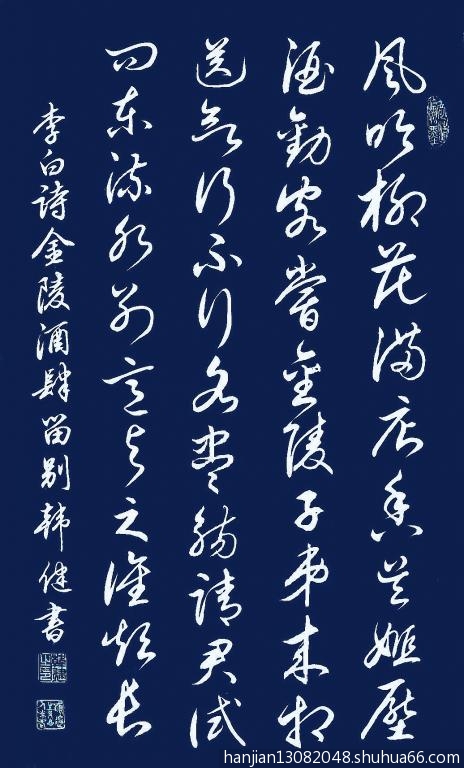 風吹柳花满店香吴姬壓
酒勸客嘗金陵子弟来相
送欲行不行各盡觞請君试
问東流水别意与之谁短長
李白诗金陵酒肆留别韩健書
hanjian13082048.shuhua66.com